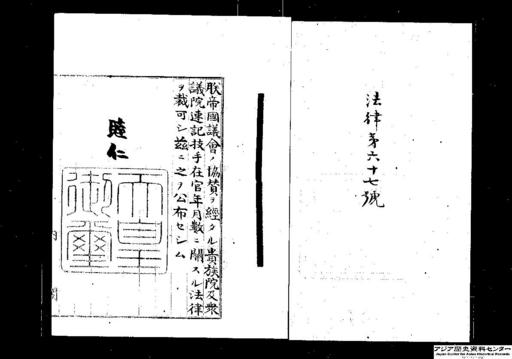 法律第六十七號
朕帝國議會ノ協贊ヲ經タル貴族院及衆
議院速記技手在官年月數ニ關スル法律
ヲ裁可シ茲ニ之ヲ公布セシム
睦仁
天皇
御璽
内閣
アジア歴史資料センター
Japan Center for Asian Historical Records